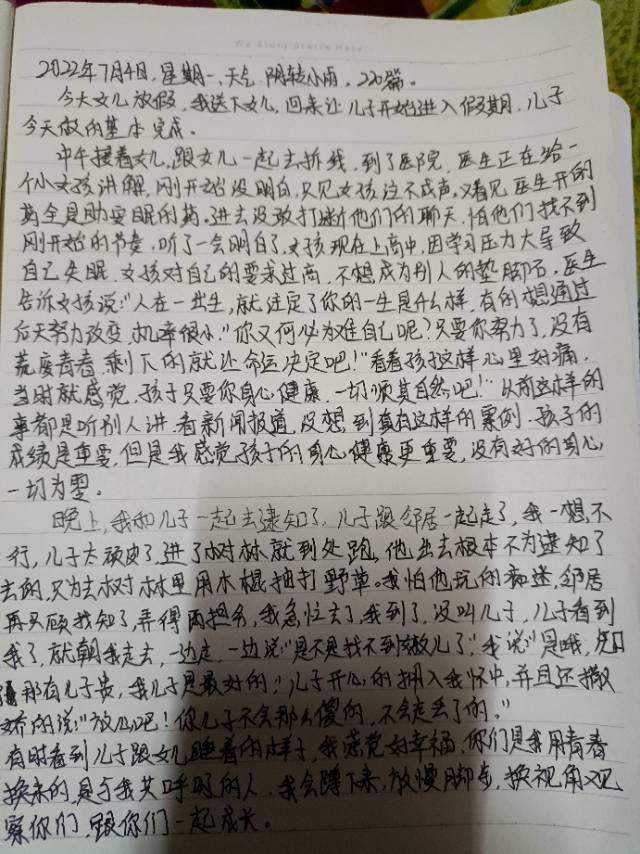 We Glory Starts Here
2022年7月4日,星期一,天气 阴转小雨,220篇。
今天女儿放假,我送下女儿,回来让儿子开始进入假期,儿子
今天做的基本完成。
中午接着女儿,跟女儿一起去拆线,到了医院,医生正在给一
个小女孩讲解,刚开始没明白,只见女孩泣不成声,又看见医生开的
药全是助要眠的药。进去没敢打断他们的聊天,怕他们找不到
刚开始的节奏,听了一会明白了,女孩现在上高中,因学习压力大导致
自己失眠,女孩对自己的要求过高,不想成为别人的垫脚石,医生
告诉女孩说:"人在一出生,就注定了你的一生是什么样,有的想通过
后天努力改变,机率很小."你又何必为难自己呢?只要你努力了,没有
荒废青春,剩下的就让命运决定吧!"看着孩子这样心里好痛,
当时就感觉,孩子只要你身心健康,一切顺其自然吧!"从前这样的
事都是听别人讲,看新闻报道,没想到真有这样的案例,孩子的
成绩是重要,但是我感觉孩子的身心健康更重要,没有好的身心
一切为零。
晚上,我和儿子一起去逮知了,儿子跟邻居一起走了,我一想不
行,儿子太顽皮了,进了树林就到处跑,他出去根本不为逮知了
去的,只为去树林里用木棍抽打野草。我怕他玩的痴迷,邻居
再只顾找知了,弄得两担多,我急忙去了,我到了,没叫儿子,儿子看到
我了,就朝我走去,一边走,一边说"是不是找不到你儿了?"我说"是哦,知
了那有儿子贵,我儿子是最好的."儿子开心的拥入我怀中,并且还撒
娇的说:"放心吧!你儿子不会那么傻的,不会走丢了的。"
有时看到儿子跟女儿睡着的样子,我感觉好幸福,你们是我用青春
换来的,是与我共呼吸的人,我会蹲下来,放慢脚步,换视角观
察你们,跟你们一起成长。